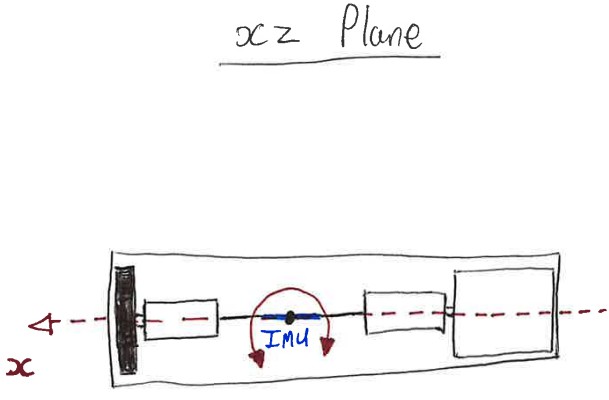 xz Plane
IMU
x